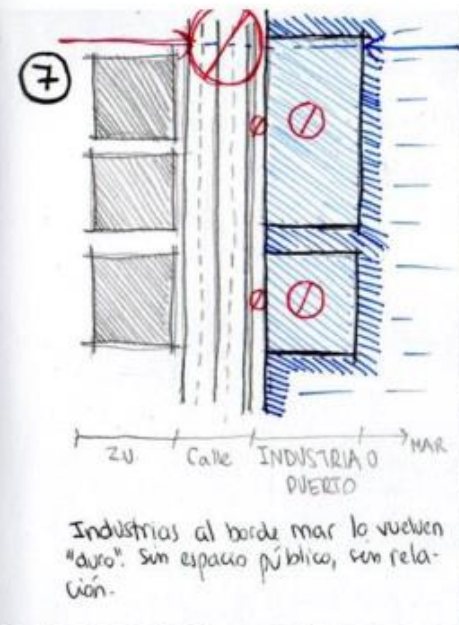 7
ZU Calle INDUSTRIA O PUERTO MAR
Industrias al borde mar lo vuelven
"duro". Sin espacio público, sin rela-
ción.